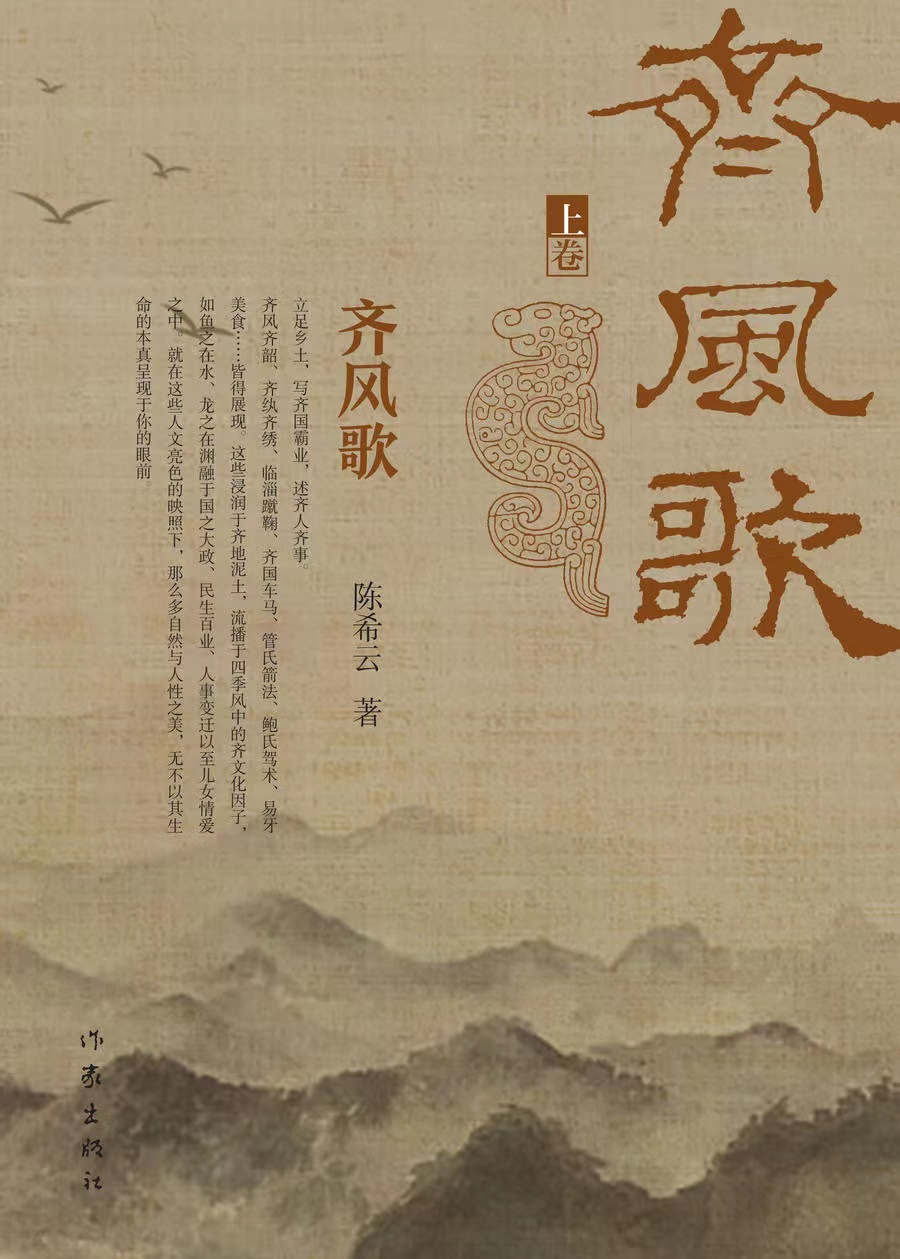 齊風歌
上卷
齐风歌
陈希云 著
立足乡土，写齐国霸业，述齐人齐事。
齐风齐韶、齐纨齐绣、临淄蹴鞠、齐国车马、管氏箭法、鲍氏驾术、易牙
美食……皆得展现。这些浸润于齐地泥土，流播于四季风中的齐文化因子，
如鱼之在水、龙之在渊融于国之大政、民生百业、人事变迁以至儿女情爱
之中。就在这些人文亮色的映照下，那么多自然与人性之美，无不以其生
命的本真呈现于你的眼前。
作家出版社